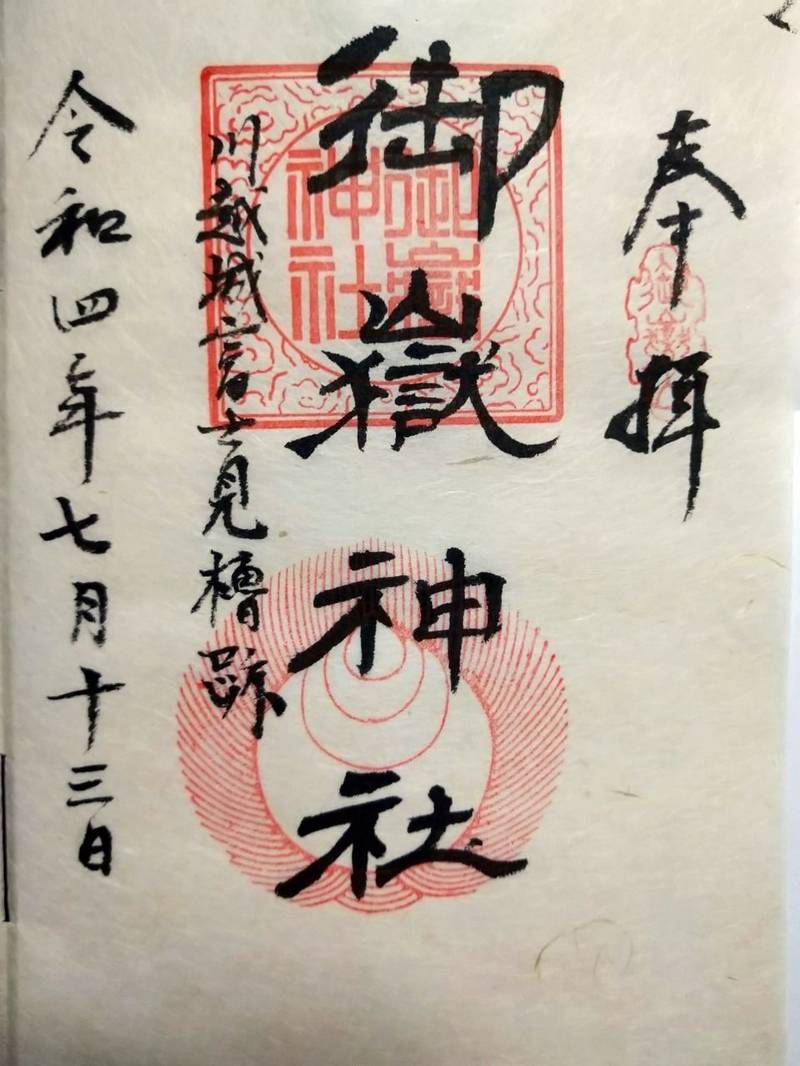 奉拝
御嶽神社
御嶽
神社
川越城富士見櫓跡
令和四年七月十三日